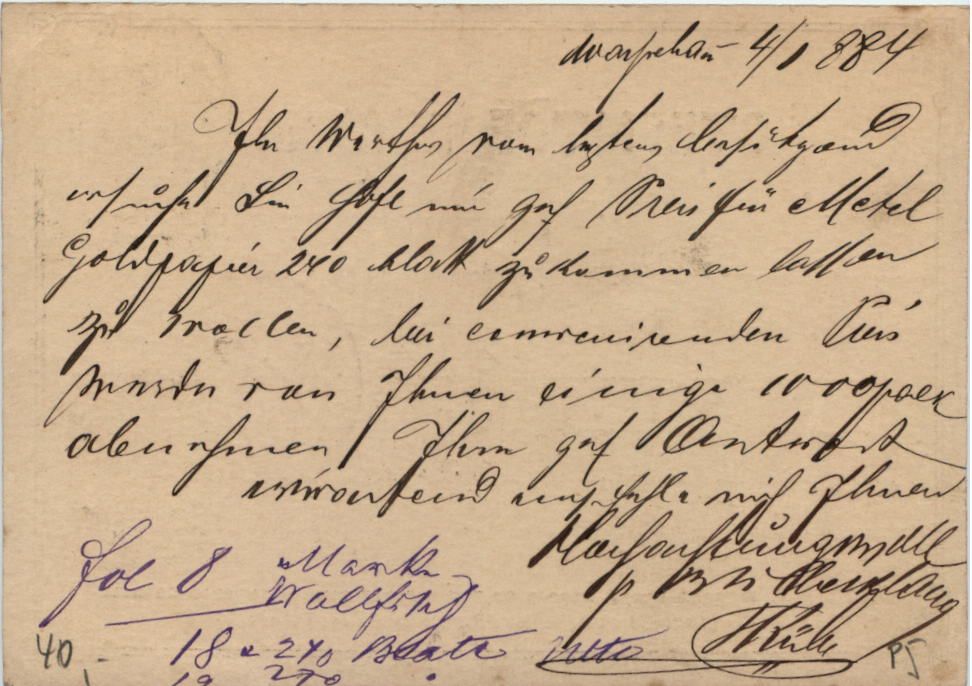 Warschau 4/1 884
Ihr Werthes vom letztens bestätigend
ersuche Sie höfl mir gef Preis für Metel
Goldpapier 240 blatt zu kommen lassen
zu wollen, bei convenirenden Preis
werde von Ihnen einige 1000 pack
abnehmen Ihre gef Antwort
erwartend empfehle mich Ihnen
Hochachtungsvoll
p
Fol 8 Mark
18 a 240 Blatt netto
270
40,-
P5